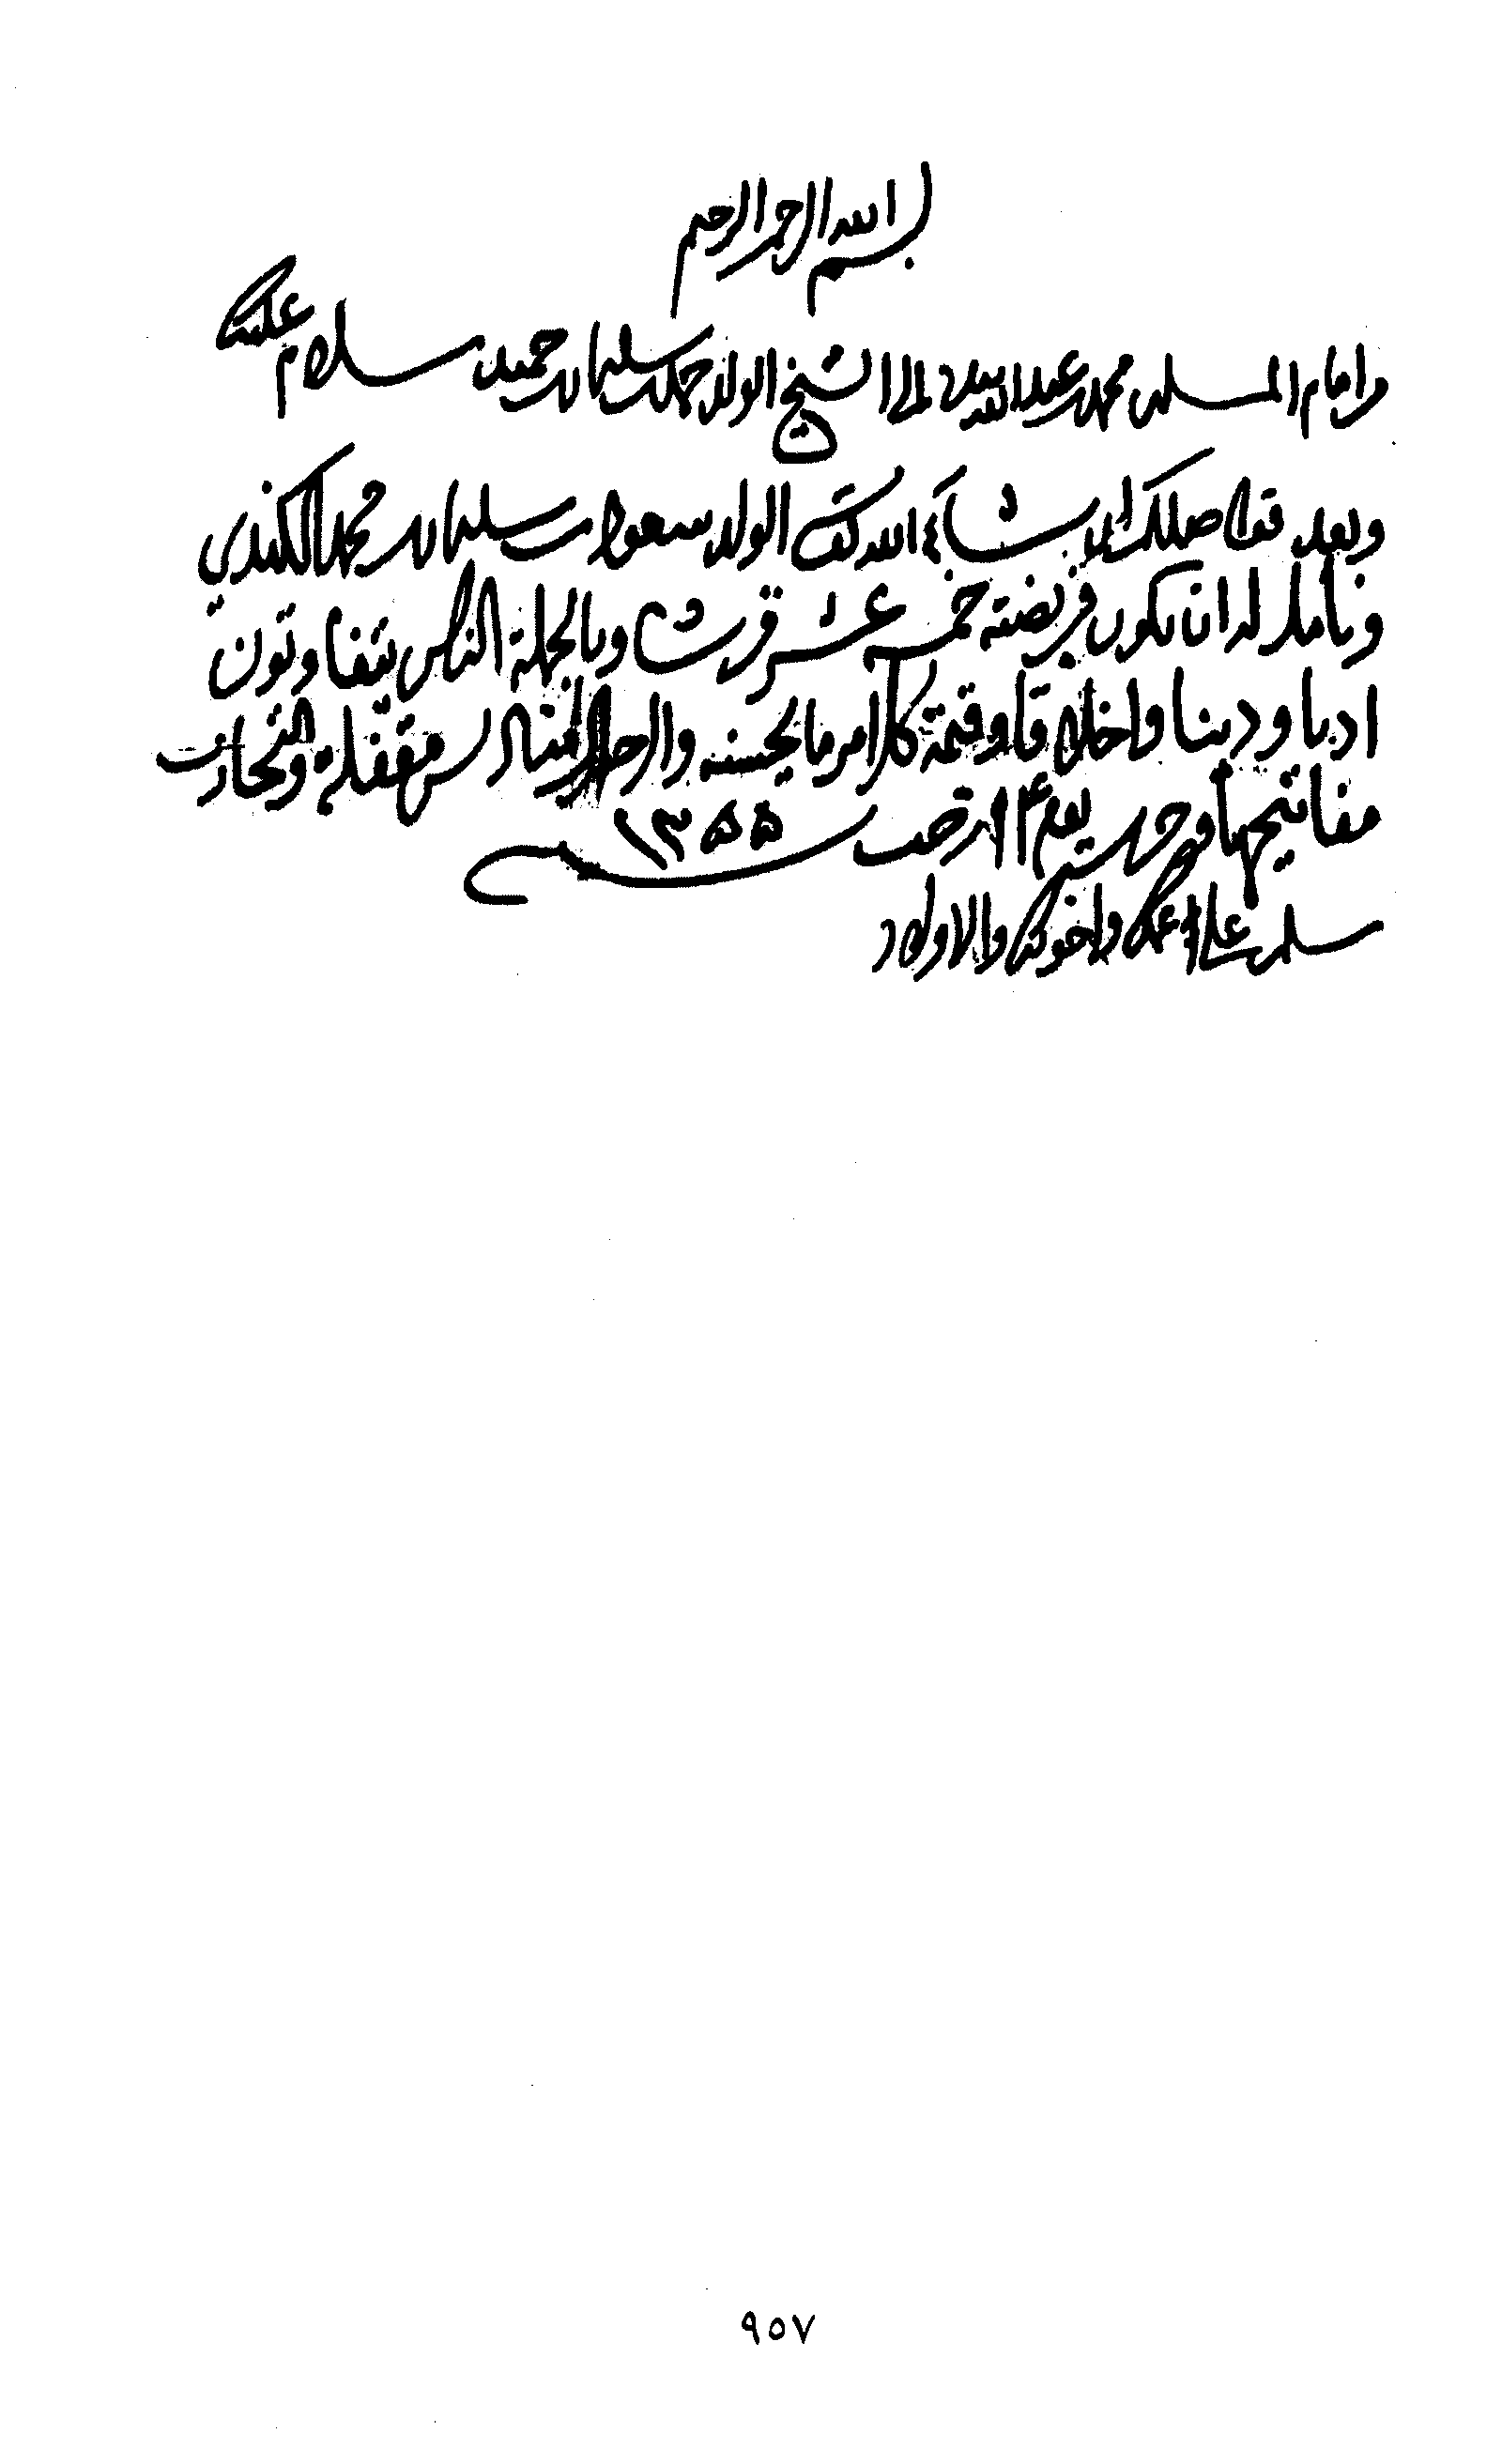 بسم الله الرحمن الرحيم
من امام المسلمين محمد بن عبدالله بيده الى الشيخ الولد سليمان بن حميد سلام عليك
وبعد فواصلك ان شاء الله ثقتك الولد سعود بن سليمان بن محمد الكندي
ونامل له ان تكون فريضته خمسة عشر قرشا وبالجملة الناس يتفاوتون
ادبا ودينا واخلاقا وقيمة كل امرء ما يحسنه والرجال مقفلة والتجارب
مفاتيحها يوم ١٤ رجب سنة ١٣٥٥
سلم على عمك واخوتك والاولاد
٩٥٧